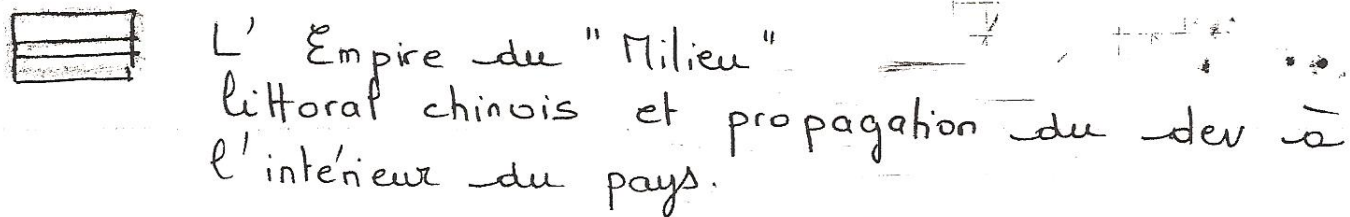 L' Empire du "Milieu"
littoral chinois et propagation du dev à
l'intérieur du pays.